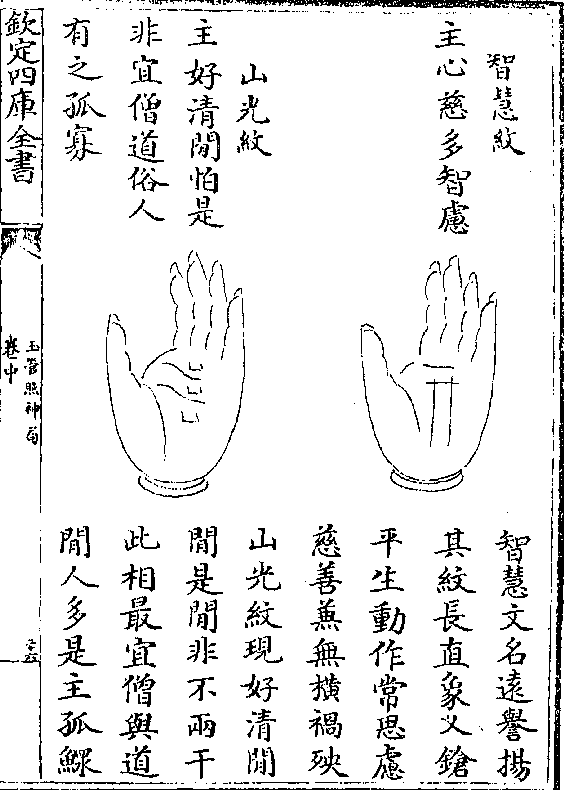 智慧紋
主心慈多智慮
智慧文名遠譽揚
其紋長直象乂鎗
平生動作常思慮
慈善蒹無橫禍殃
山光紋
主好清閒怕是
非宜僧道俗人
有之孤寡
山光紋現好清閒
閒是閒非不兩干
此相最宜僧與道
閒人多是主孤鰥
欽定四庫全書
玉管照神局
卷中